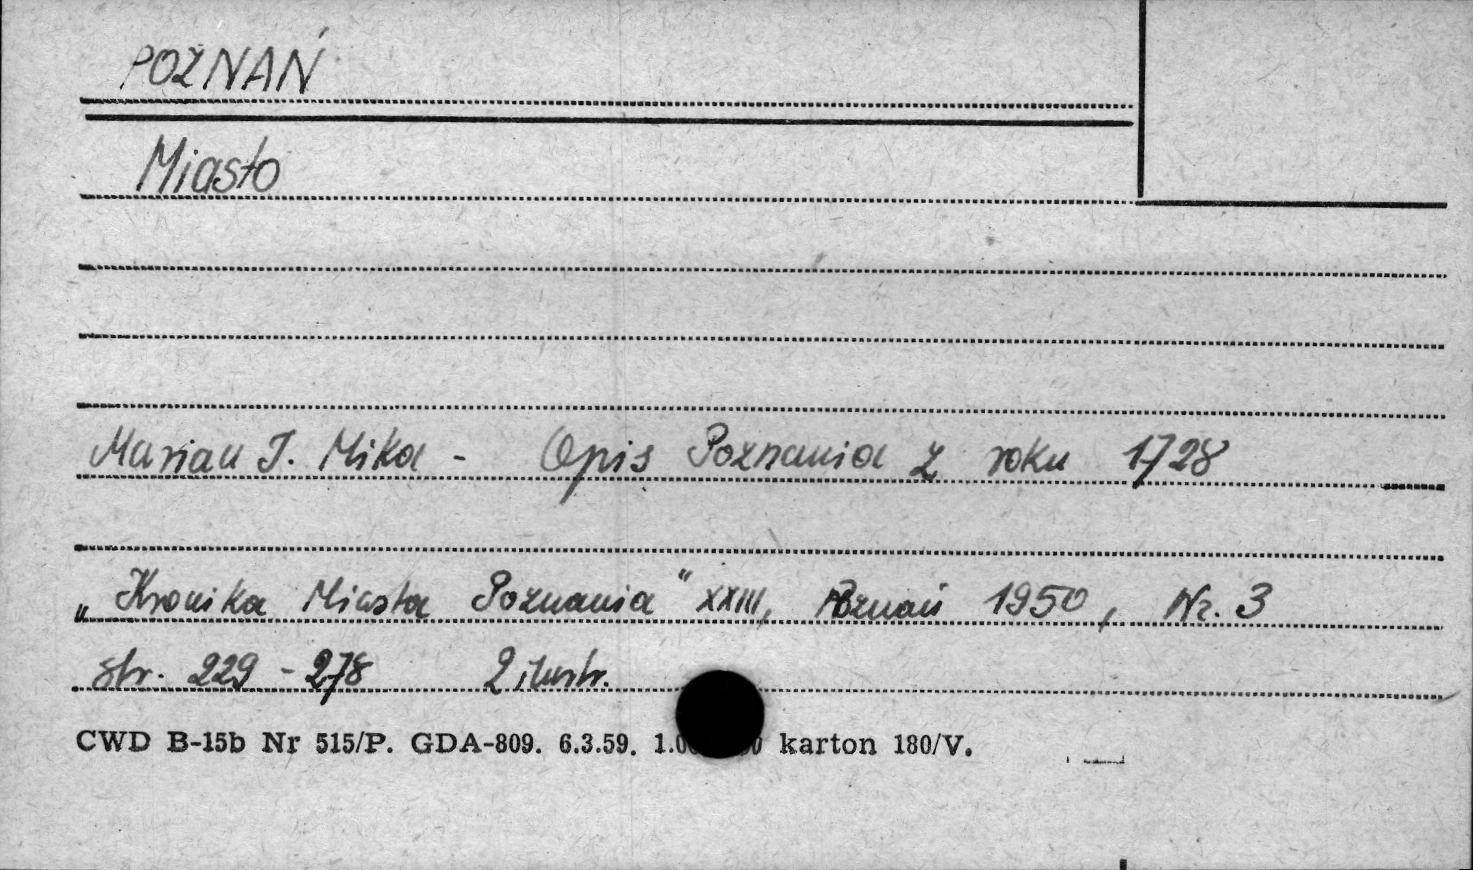 POZNAŃ
Miasto
Marian J. Mika - Opis Poznania z roku 1728
„Kronika Miasta Poznania" XXIII, Poznań 1950, Nr. 3
str. 229 - 278 2 ilustr.
CWD B-15b Nr 515/P. GDA-809. 6.3.59. karton 180/V.